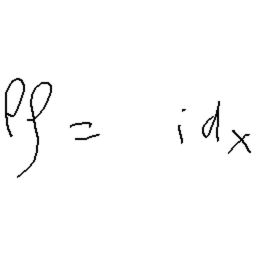 ff = id_x